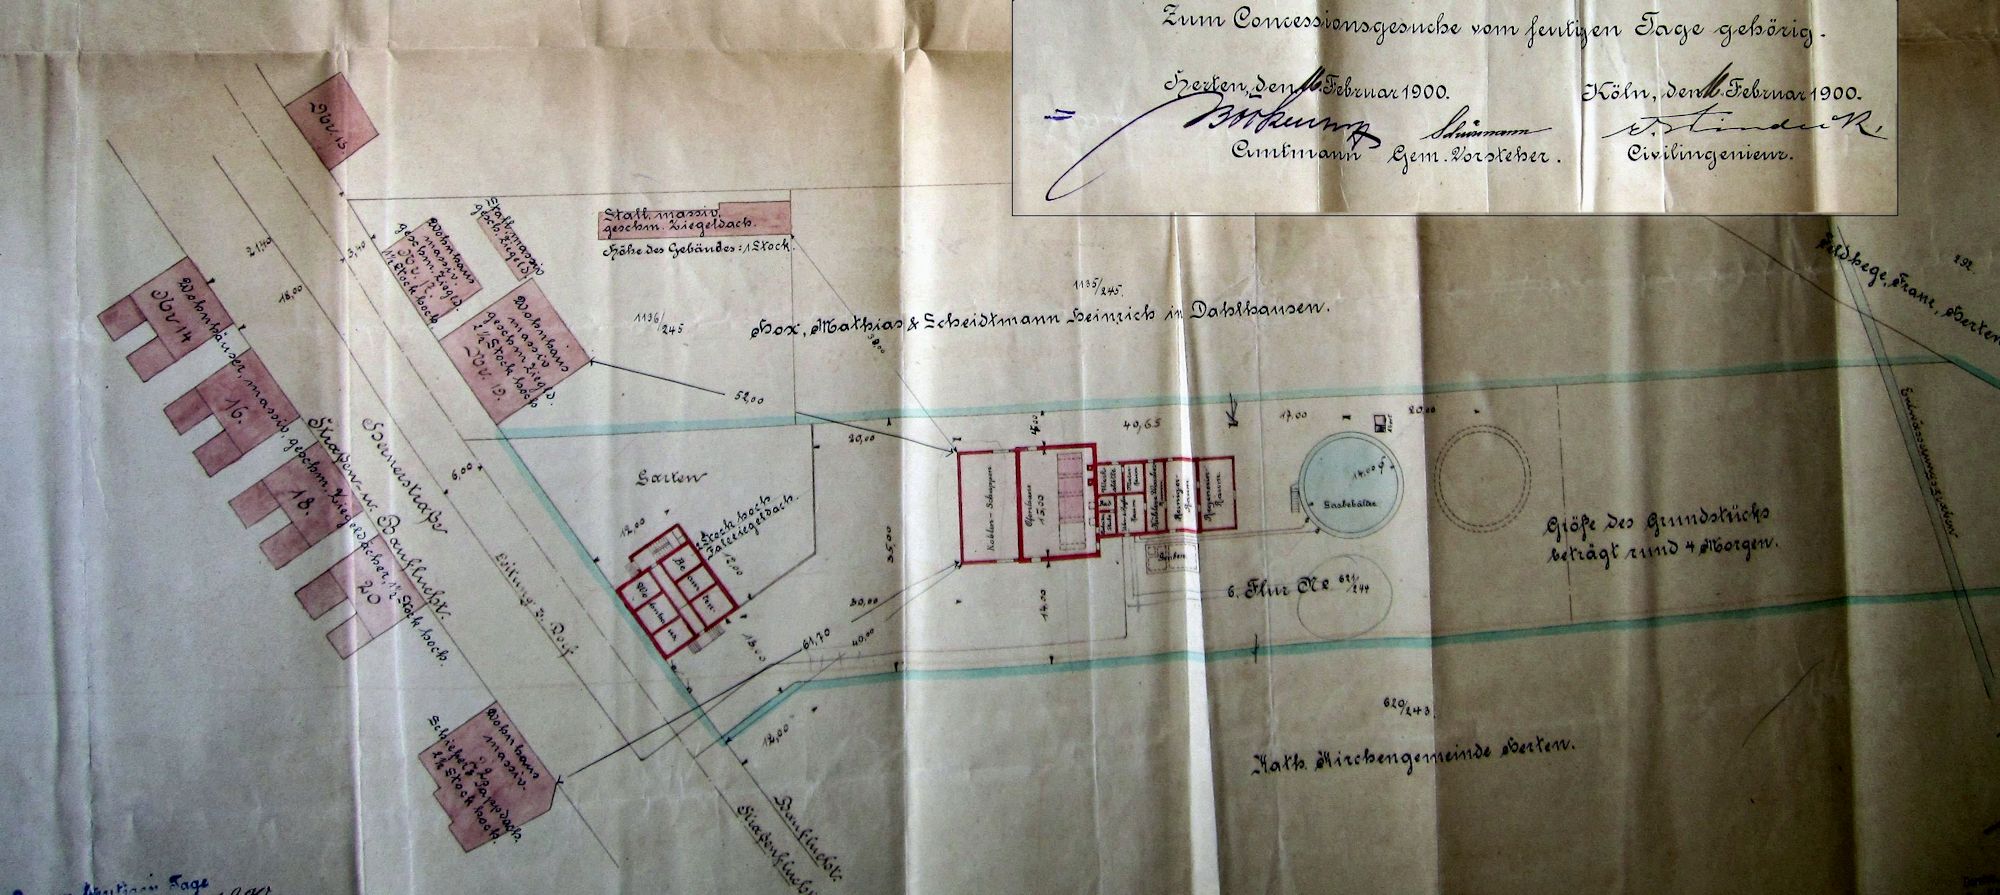 Zum Concessionsgesuche vom heutigen Tage gehörig.
Herten, den 16. Februar 1900.
Köln, den 16. Februar 1900.
Schürmann
Amtmann
Gem. Vorsteher.
Civilingenieur.
No. 15.
Stall massiv
geschm. Ziegeld.
Wohnhaus
massiv
geschm. Ziegeld.
No. 17.
1½ Stock hoch
Stall, massiv,
geschm. Ziegeldach.
Höhe des Gebäudes: 1 Stock.
Wohnhaus
massiv
geschm. Ziegeld.
2½ Stock hoch
No. 19.
2,40
3,40
18,00
1136/245
1135/245.
Hox, Mathias & Scheidtmann Heinrich in Dahlhausen.
38,00
292.
Feldhege, Franz, Herten
Entwässerungsgraben
Wohnhäuser, massiv, geschm. Ziegeldächer, 1½ Stock hoch.
No 14
16.
18.
20
Hernerstraße
Straßen- u. Bauflucht.
6,00
Leitung z. Dorf
52,00
20,00
4,00
40,65
17,00
20,00
Garten
1 Stock hoch
Falzziegeldach.
12,00
12,00
Beamten
Wohnhaus
18,00
35,00
Kohlen-Schuppen
Ofenhaus
15,00
Reiniger
Raum
Regenerier
Raum
14,00 φ
Gasbehälter
Abort
Größe des Grundstücks
beträgt rund 4 Morgen.
6. Flur No 621/244
14,00
30,00
40,00
61,70
12,00
620/243.
Kath. Kirchengemeinde Herten.
Wohnhaus
massiv.
No 22
Schiefer & Pappdach
2½ Stock hoch.
Bauflucht.
Straßenflucht
heutigen Tage